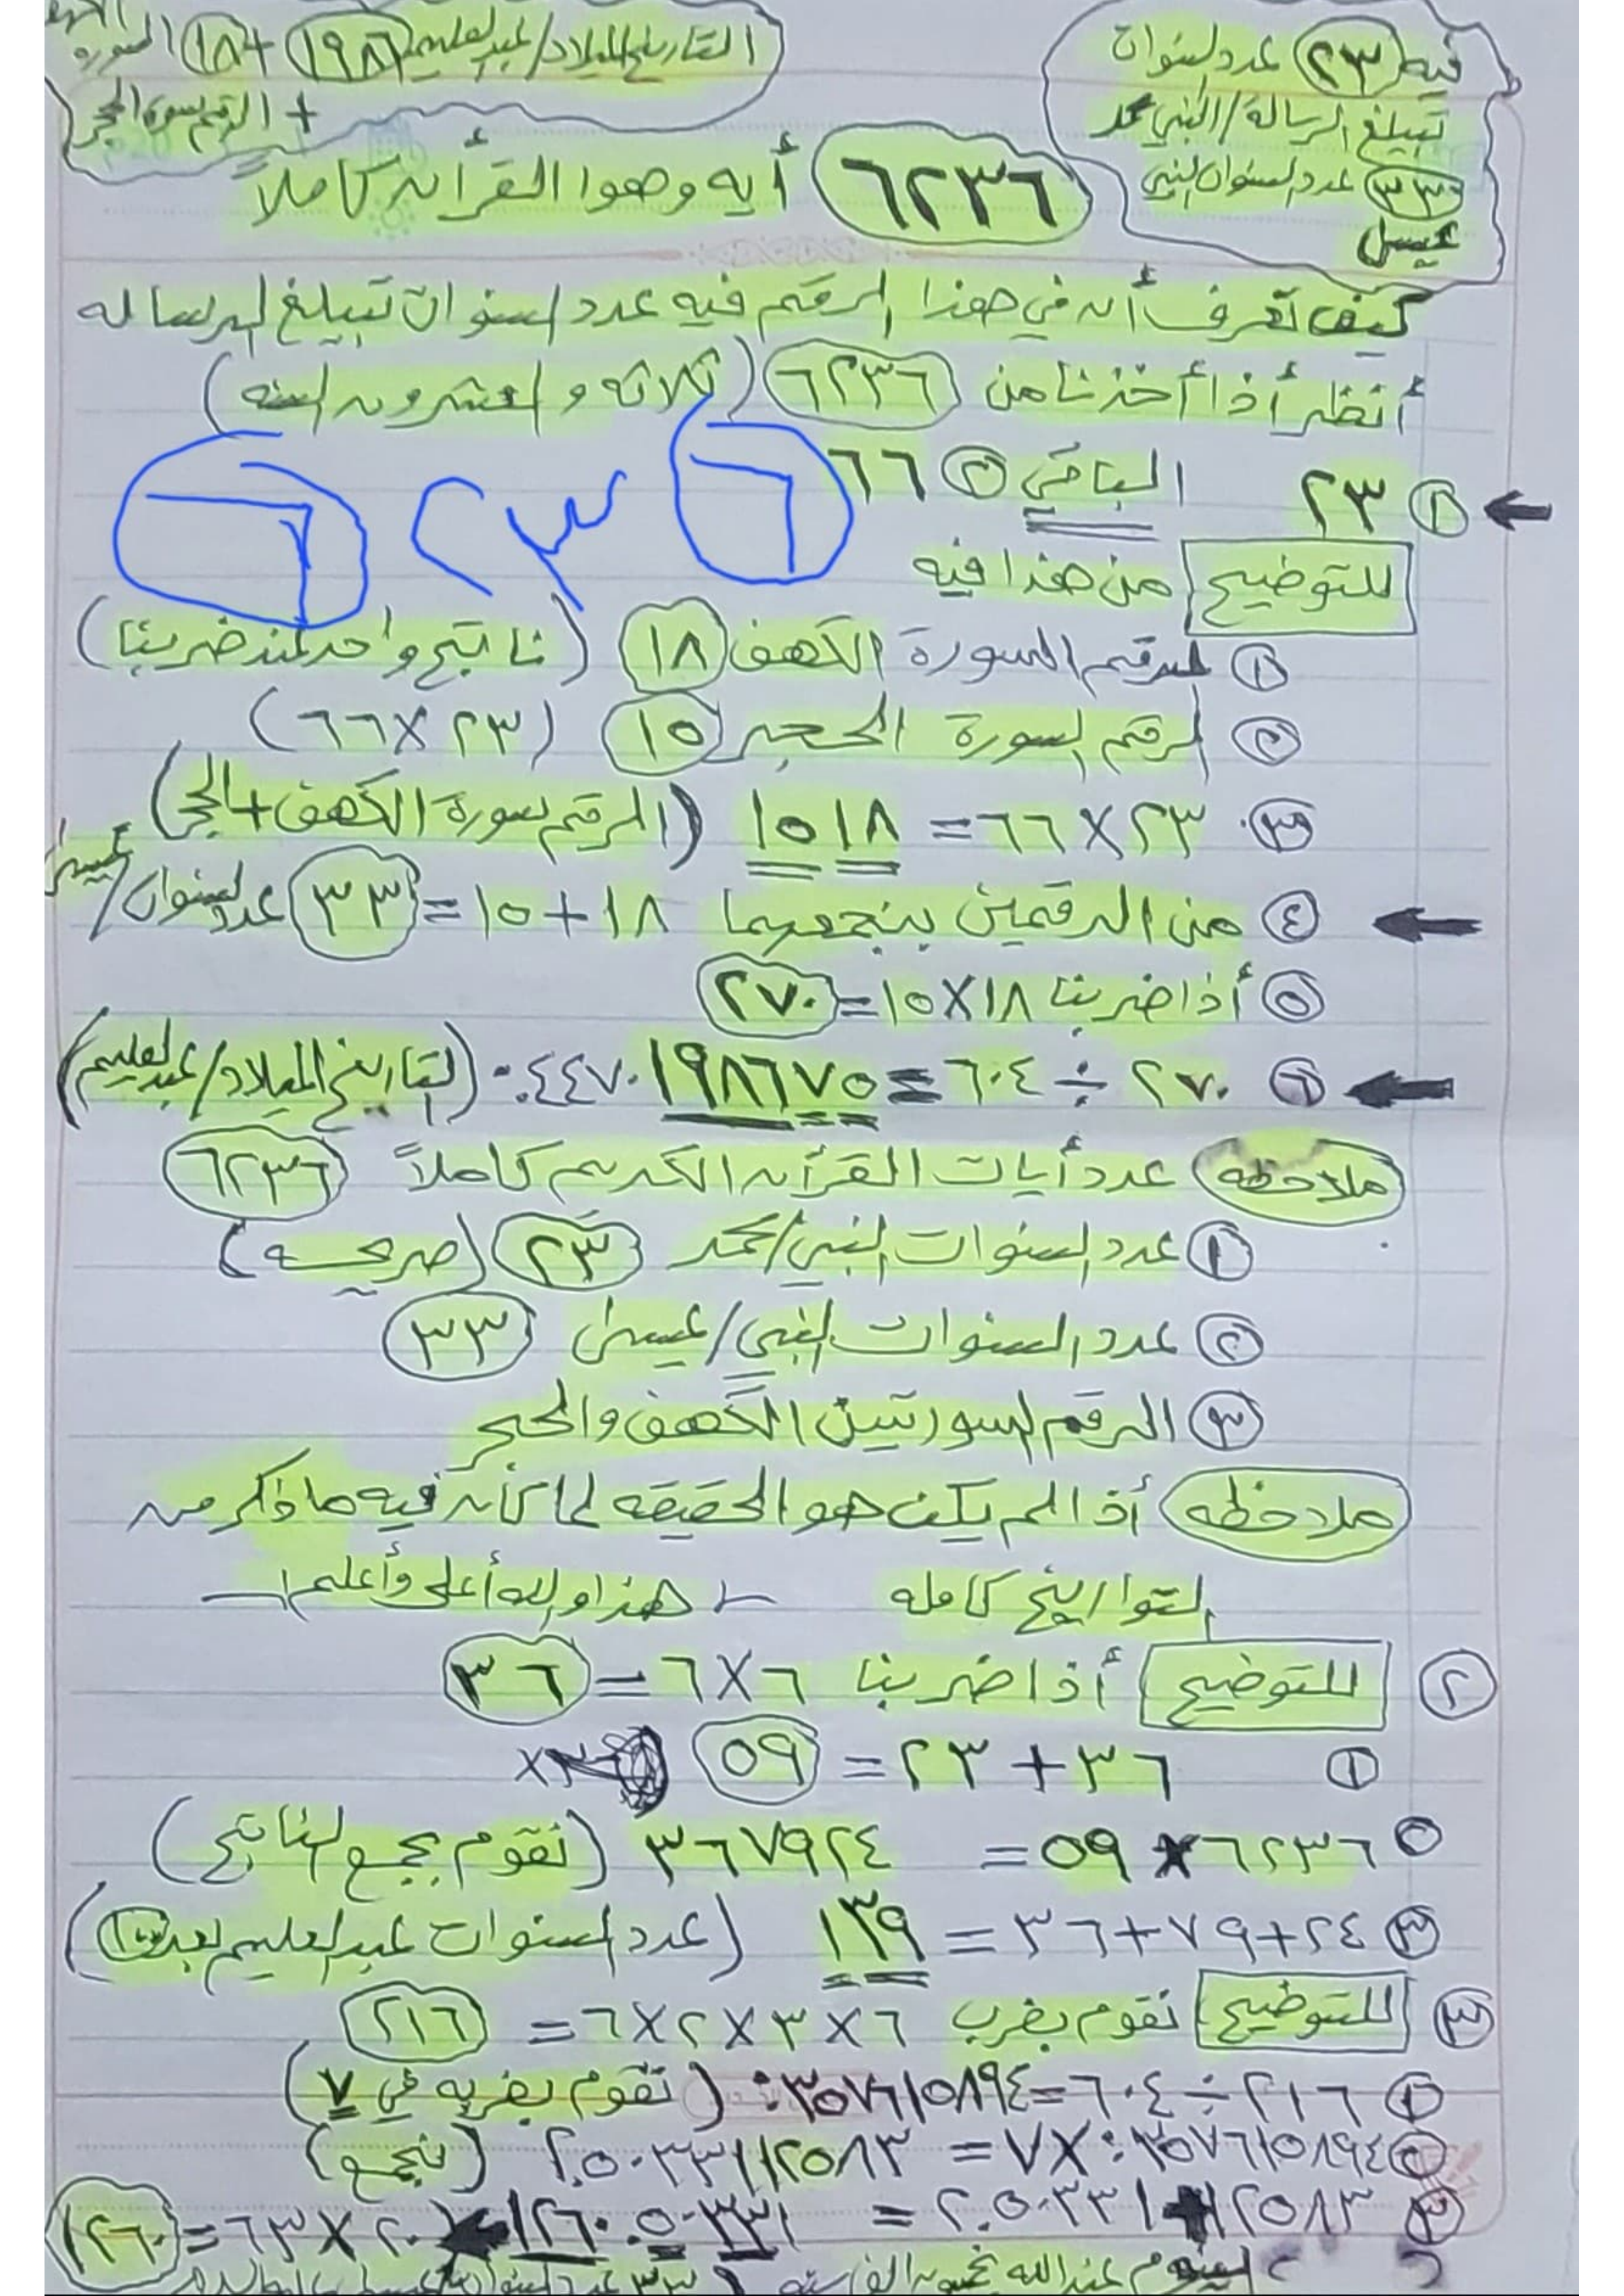 فيه ٢٣ عدد السنوان
تبيلغ الرسالة/النبي محمد
٣٣ عدد السنوان النبي
عيسى
التاريخ الميلاد/عبدالعليم ١٩٨٦ + ١٨ السوره
+ الرقم سورة الحجر
٦٢٣٦ أيه وهوا القرأن كاملاً
كيف تعرف أن في هذا الرقم فيه عدد السنوان تبيلغ الرساله
أنظر أذا أخذنا من ٦٢٣٦ (ثلاثه والعشرون السنه)
① ٢٣ الباقي ② ٦٦
٦ ٢٣ ٦
للتوضيح من هذا فيه
① الرقم السورة الكهف ١٨ (ناتج واحد عند ضربنا)
② الرقم السورة الحجر ١٥ (٢٣ × ٦٦)
③ ٢٣ × ٦٦ = ١٥١٨ (الرقم سورة الكهف + الحجر)
④ من الرقمين بنجمعهما ١٨ + ١٥ = ٣٣ عدد السنوان/عيسى
⑤ أذا ضربنا ١٨ × ١٥ = ٢٧٠
⑥ ٢٧٠ ÷ ٦٠٤ = ٠.٤٤٧٠١٩٨٦٧٥ (التاريخ الميلاد/عبدالعليم)
ملاحظه عدد أيات القرأن الكريم كاملاً ٦٢٣٦
① عدد السنوات النبي/محمد ٢٣ (صريحه)
② عدد السنوات النبي/عيسى ٣٣
③ الرقم السورتين الكهف والحجر
ملاحظه أذا لم يكن هو الحقيقه لما كأن فيه ماذكر من
التواريخ كامله هذا والله أعلى وأعلم
② للتوضيح أذا ضربنا ٦ × ٦ = ٣٦
① ٣٦ + ٢٣ = ٥٩
② ٦٢٣٦ × ٥٩ = ٣٦٧٩٢٤ (نقوم بجمع الناتج)
③ ٢٤ + ٧٩ + ٣٦ = ١٣٩ (عدد السنوات عبدالعليم بعد
③ للتوضيح نقوم بضرب ٦ × ٣ × ٢ × ٦ = ٢١٦
① ٢١٦ ÷ ٦٠٤ = ٠.٣٥٧٦١٥٨٩٤ (نقوم بضربه في ٧)
② ٠.٣٥٧٦١٥٨٩٤ × ٧ = ٢.٥٠٣٣١١٢٥٨٣ (نجمع)
③ ٢.٥٠٣٣١ + ١٢٥٨٣ = ١٢٦٠.٥٠٣٣١ (٢٠ × ٦٣ = ١٢٦٠
اليوم عندالله بخمسون الف سنه ٣٣ عدد السنوان